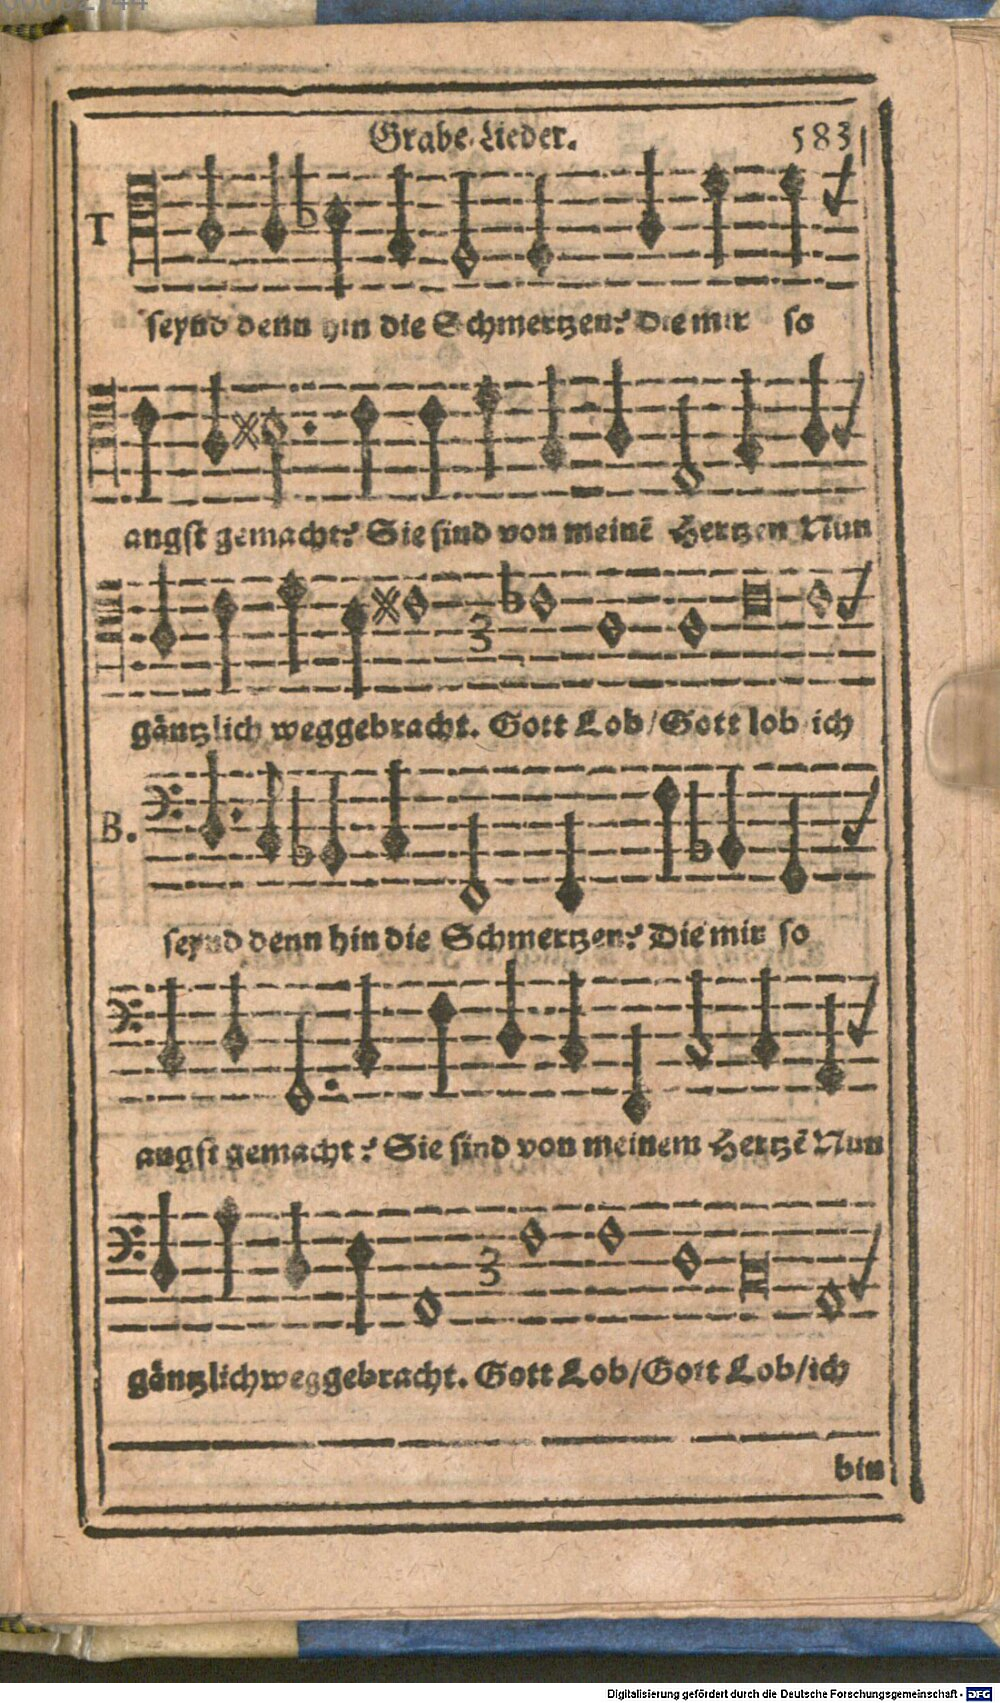 Grabe-Lieder. 583
T
seynd denn hin die Schmertzen? Die mir so
angst gemacht? Sie sind von meinē Hertzen Nun
gäntzlich weggebracht. Gott Lob/Gott lob ich
B.
seynd denn hin die Schmertzen? Die mir so
angst gemacht? Sie sind von meinem Hertzē Nun
gäntzlich weggebracht. Gott Lob/Gott Lob/ich
bin
Digitalisierung gefördert durch die Deutsche Forschungsgemeinschaft - DFG